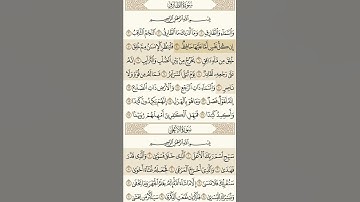 سُورَةُ الطَّارِقِ
بِسْمِ اللَّهِ الرَّحْمَٰنِ الرَّحِيمِ
وَالسَّمَاءِ وَالطَّارِقِ ۝ وَمَا أَدْرَاكَ مَا الطَّارِقُ ۝ النَّجْمُ الثَّاقِبُ ۝
إِن كُلُّ نَفْسٍ لَّمَّا عَلَيْهَا حَافِظٌ ۝ فَلْيَنظُرِ الْإِنسَانُ مِمَّ خُلِقَ ۝
خُلِقَ مِن مَّاءٍ دَافِقٍ ۝ يَخْرُجُ مِن بَيْنِ الصُّلْبِ وَالتَّرَائِبِ ۝ إِنَّهُ
عَلَىٰ رَجْعِهِ لَقَادِرٌ ۝ يَوْمَ تُبْلَى السَّرَائِرُ ۝ فَمَا لَهُ مِن قُوَّةٍ وَلَا
نَاصِرٍ ۝ وَالسَّمَاءِ ذَاتِ الرَّجْعِ ۝ وَالْأَرْضِ ذَاتِ الصَّدْعِ ۝
إِنَّهُ لَقَوْلٌ فَصْلٌ ۝ وَمَا هُوَ بِالْهَزْلِ ۝ إِنَّهُمْ يَكِيدُونَ كَيْدًا ۝
وَأَكِيدُ كَيْدًا ۝ فَمَهِّلِ الْكَافِرِينَ أَمْهِلْهُمْ رُوَيْدًا ۝
سُورَةُ الْأَعْلَىٰ
بِسْمِ اللَّهِ الرَّحْمَٰنِ الرَّحِيمِ
سَبِّحِ اسْمَ رَبِّكَ الْأَعْلَى ۝ الَّذِي خَلَقَ فَسَوَّىٰ ۝ وَالَّذِي قَدَّرَ
فَهَدَىٰ ۝ وَالَّذِي أَخْرَجَ الْمَرْعَىٰ ۝ فَجَعَلَهُ غُثَاءً أَحْوَىٰ ۝
سَنُقْرِئُكَ فَلَا تَنسَىٰ ۝ إِلَّا مَا شَاءَ اللَّهُ إِنَّهُ يَعْلَمُ الْجَهْرَ وَمَا يَخْفَىٰ ۝
وَنُيَسِّرُكَ لِلْيُسْرَىٰ ۝ فَذَكِّرْ إِن نَّفَعَتِ الذِّكْرَىٰ ۝ سَيَذَّكَّرُ مَن يَخْشَىٰ ۝